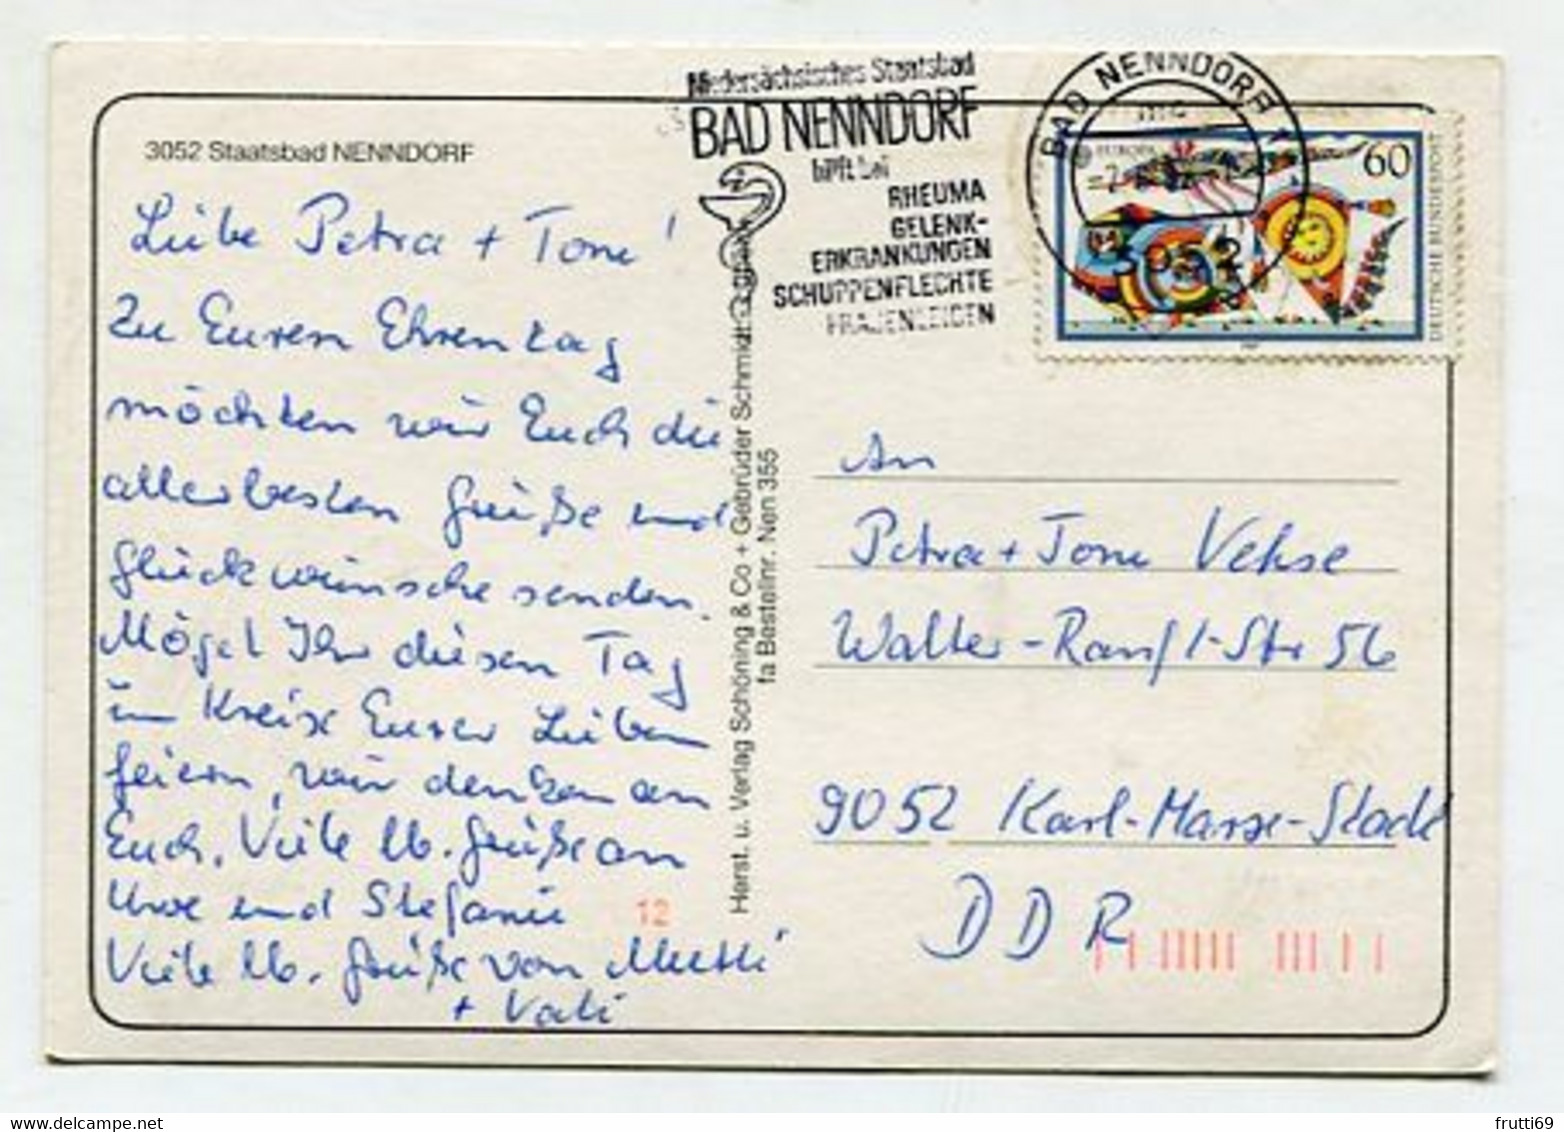 3052 Staatsbad NENNDORF
Liebe Petra + Toni!
Zu Euren Ehrentag
möchten wir Euch die
allerbesten Grüße und
Glückwünsche senden.
Möget Ihr diesen Tag
im Kreise Eurer Lieben
feiern, wir denken an
Euch. Viele lb. Grüße an
Uwe und Stefanie
Viele lb. Grüße von Mutti
+ Vati
12
Herst. u. Verlag Schöning & Co + Gebrüder Schmidt
fa Bestellnr. Nen 355
Niedersächsisches Staatsbad
BAD NENNDORF
hilft bei
RHEUMA
GELENK-
ERKRANKUNGEN
SCHUPPENFLECHTE
FRAUENLEIDEN
BAD NENNDORF 1
3052
EUROPA
60
DEUTSCHE BUNDESPOST
An
Petra + Toni Vekse
Walter-Ranft-Str 56
9052 Karl-Marx-Stadt
DDR
delcampe.net
frutti69